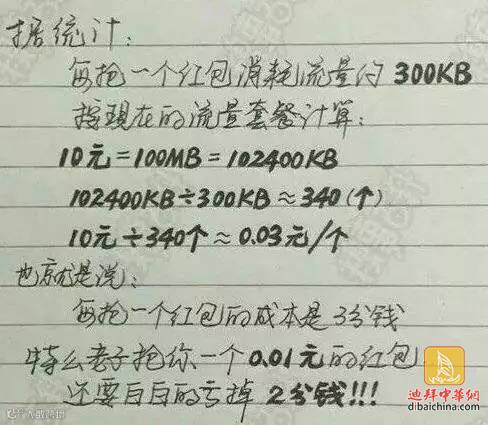 据统计:
每抢一个红包消耗流量约 300KB
按现在的流量套餐计算:
10元=100MB=102400KB
102400KB÷300KB≈340(个)
10元÷340个≈0.03元/个
也就是说:
每抢一个红包的成本是3分钱
特么老子抢你一个0.01元的红包
还要白白的亏掉 2分钱!!!
迪拜中華網
dibaichina.com